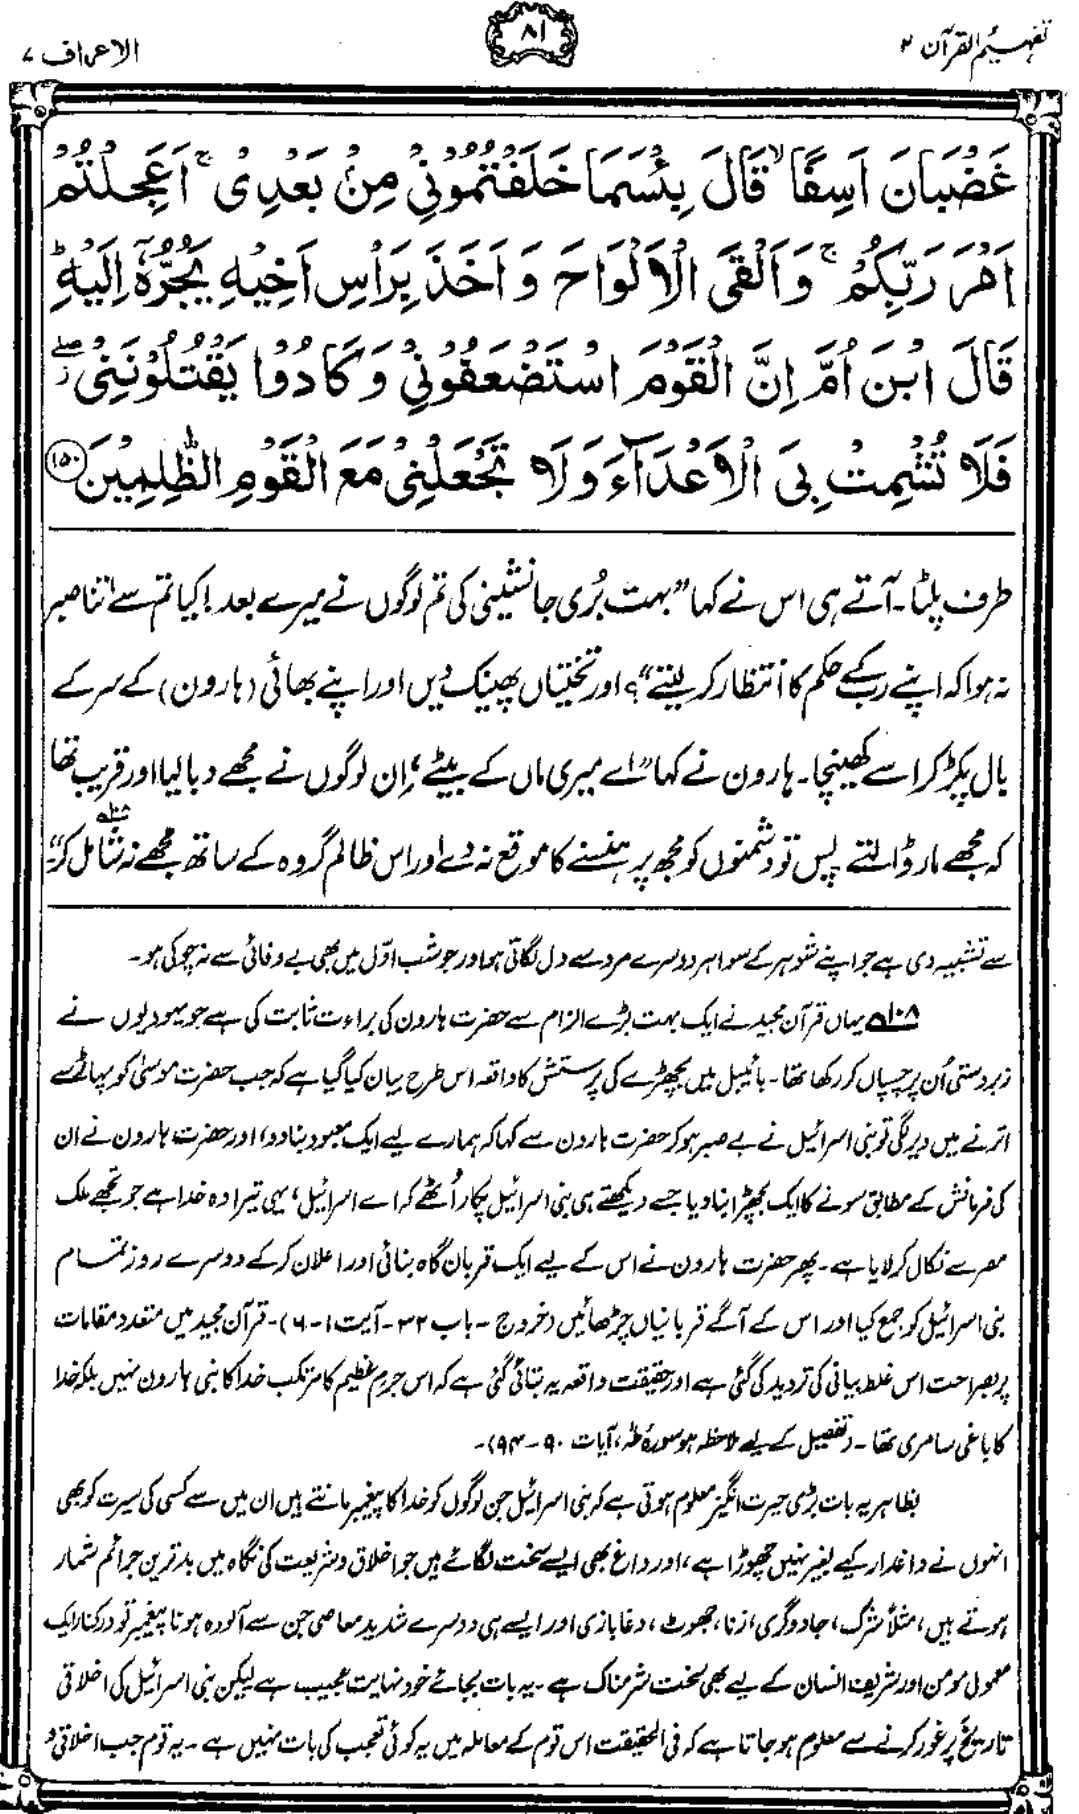 تفہیم القرآن ۲
۸۱
الاعراف ۷
غَضْبَانَ اَسِفًا ۙ قَالَ بِئْسَمَا خَلَفْتُمُوْنِيْ مِنْۢ بَعْدِيْ ۚ اَعَجِلْتُمْ
اَمْرَ رَبِّكُمْ ۚ وَاَلْقَى الْاَلْوَاحَ وَاَخَذَ بِرَاْسِ اَخِيْهِ يَجُرُّهٗٓ اِلَيْهِ ؕ
قَالَ ابْنَ اُمَّ اِنَّ الْقَوْمَ اسْتَضْعَفُوْنِيْ وَكَادُوْا يَقْتُلُوْنَنِيْ ۖ ز
فَلَا تُشْمِتْ بِيَ الْاَعْدَآءَ وَلَا تَجْعَلْنِيْ مَعَ الْقَوْمِ الظّٰلِمِيْنَ ۱۵۰
طرف پلٹا۔ آتے ہی اس نے کہا ”بہت بُری جانشینی کی تم لوگوں نے میرے بعد! کیا تم سے اتنا صبر
نہ ہوا کہ اپنے رب کے حکم کا انتظار کر لیتے“؟ اور تختیاں پھینک دیں اور اپنے بھائی (ہارون) کے سر کے
بال پکڑ کر اسے کھینچا۔ ہارون نے کہا ”اے میری ماں کے بیٹے، اِن لوگوں نے مجھے دبا لیا اور قریب تھا
کہ مجھے مار ڈالتے پس تو دشمنوں کو مجھ پر ہنسنے کا موقع نہ دے اور اس ظالم گروہ کے ساتھ مجھے نہ شامل کر“ ۱۰۸
سے تشبیہ دی ہے جو اپنے شوہر کے سوا ہر دوسرے مرد سے دل لگاتی ہو اور جو شب اوّل میں بھی بے وفائی سے نہ چوکی ہو۔
۱۰۸ یہاں قرآن مجید نے ایک بہت بڑے الزام سے حضرت ہارون کی براءت ثابت کی ہے جو یہودیوں نے
زبردستی اُن پر چسپاں کر رکھا تھا۔ بائیبل میں بچھڑے کی پرستش کا واقعہ اس طرح بیان کیا گیا ہے کہ جب حضرت موسیٰ کو پہاڑ سے
اترنے میں دیر لگی تو بنی اسرائیل نے بے صبر ہو کر حضرت ہارون سے کہا کہ ہمارے لیے ایک معبود بنا دو، اور حضرت ہارون نے ان
کی فرمائش کے مطابق سونے کا ایک بچھڑا بنا دیا جسے دیکھتے ہی بنی اسرائیل پکار اُٹھے کہ اے اسرائیل، یہی تیرا وہ خدا ہے جو تجھے ملک
مصر سے نکال کر لایا ہے۔ پھر حضرت ہارون نے اس کے لیے ایک قربان گاہ بنائی اور اعلان کر کے دوسرے روز تمام
بنی اسرائیل کو جمع کیا اور اس کے آگے قربانیاں چڑھائیں (خروج۔ باب ۳۲۔ آیت ۱-۶)۔ قرآن مجید میں متعدد مقامات
پر بصراحت اس غلط بیانی کی تردید کی گئی ہے اور حقیقت واقعہ یہ بتائی گئی ہے کہ اس جرم عظیم کا مرتکب خدا کا نبی ہارون نہیں بلکہ خدا
کا باغی سامری تھا۔ (تفصیل کے لیے ملاحظہ ہو سورۂ طٰہٰ، آیات ۹۰-۹۴)۔
بظاہر یہ بات بڑی حیرت انگیز معلوم ہوتی ہے کہ بنی اسرائیل جن لوگوں کو خدا کا پیغمبر مانتے ہیں ان میں سے کسی کی سیرت کو بھی
انہوں نے داغدار کیے بغیر نہیں چھوڑا ہے، اور داغ بھی ایسے سخت لگائے ہیں جو اخلاق و شریعت کی نگاہ میں بدترین جرائم شمار
ہوتے ہیں، مثلاً شرک، جادوگری، زنا، جھوٹ، دغا بازی اور ایسے ہی دوسرے شدید معاصی جن سے آلودہ ہونا پیغمبر تو درکنار ایک
معمولی مومن اور شریف انسان کے لیے بھی سخت شرمناک ہے۔ یہ بات بجائے خود نہایت عجیب ہے لیکن بنی اسرائیل کی اخلاقی
تاریخ پر غور کرنے سے معلوم ہو جاتا ہے کہ فی الحقیقت اس قوم کے معاملہ میں یہ کوئی تعجب کی بات نہیں ہے۔ یہ قوم جب اخلاقی و